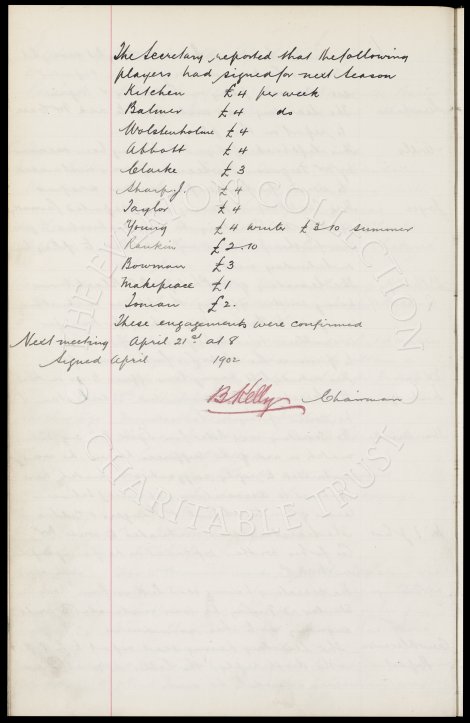 The Secretary reported that the following
players had signed for next Season
Kitchen £4 per week
Balmer £4 do
Wolstenholme £4
Abbott £4
Clarke £3
Sharp J. £4
Taylor £4
Young £4 winter £3 10 summer
Rankin £2.10
Bowman £3
Makepeace £1
Toman £2.
These engagements were confirmed
Next meeting April 21st at 8
Signed April 1902
B Kelly Chairman
THE EVERTON COLLECTION
CHARITABLE TRUST